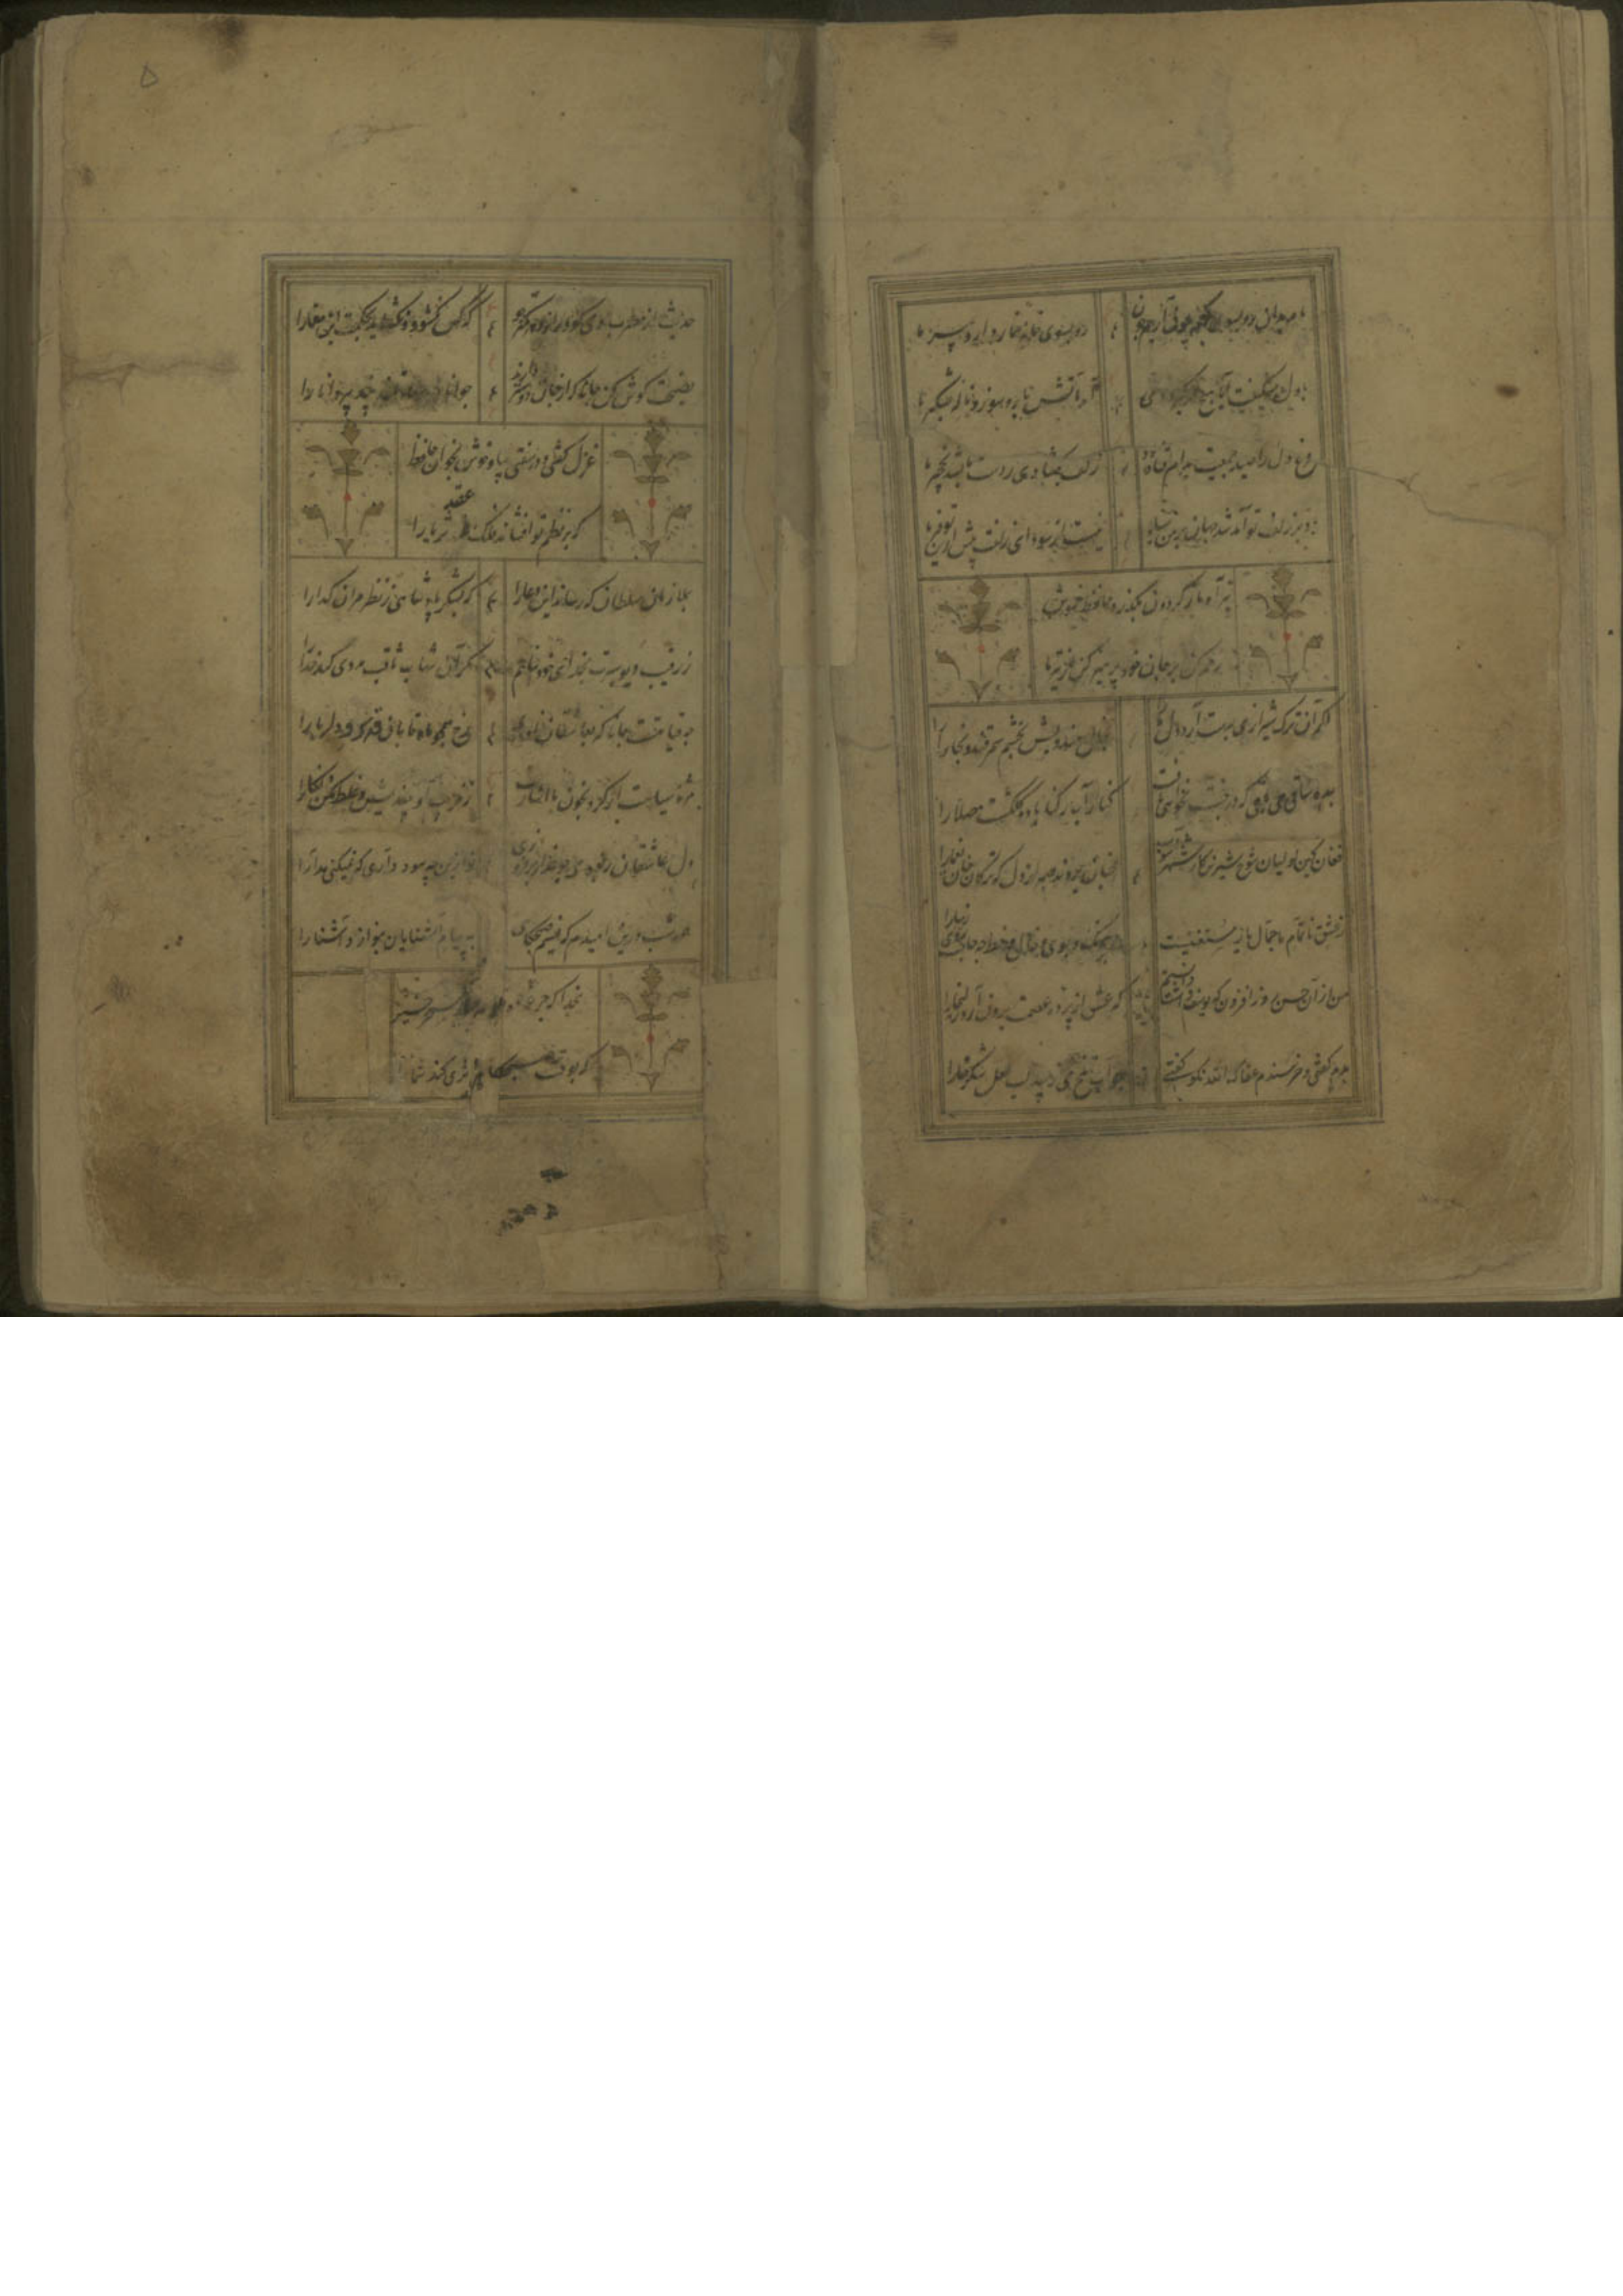 ما مریدان رو بسوی کعبه چون آریم چون
رو بسوی خانه خمار دارد پیر ما
با دل سنگینت آیا هیچ در گیرد شبی
آه آتش بار و سوز و ناله شبگیر ما
مرغ دل را صید جمعیت بدام افتاده بود
زلف بگشادی ز دست ما بشد نخجیر ما
باد بر زلف تو آمد شد جهان بر من سیاه
نیست از سودای زلفت بیش ازین توفیر ما
تیر آه ما ز گردون بگذرد حافظ خموش
رحم کن بر جان خود پرهیز کن از تیر ما
اگر آن ترک شیرازی بدست آرد دل ما را
بخال هندویش بخشم سمرقند و بخارا را
بده ساقی می باقی که در جنت نخواهی یافت
کنار آب رکناباد و گلگشت مصلا را
فغان کین لولیان شوخ شیرین کار شهر آشوب
چنان بردند صبر از دل که ترکان خوان یغما را
ز عشق ناتمام ما جمال یار مستغنیست
برنگ و بوی و خال و خط چه حاجت روی زیبا را
من از آن حسن روز افزون که یوسف داشت دانستم
که عشق از پرده عصمت برون آرد زلیخا را
بدم گفتی و خرسندم عفاک الله نکو گفتی
جواب تلخ می زیبد لب لعل شکر خا را
حدیث از مطرب و می گو و راز دهر کمتر جو
که کس نگشود و نگشاید بحکمت این معما را
نصیحت گوش کن جانا که از جان دوستر دارند
جوانان سعادتمند پند پیر دانا را
غزل گفتی و در سفتی بیا و خوش بخوان حافظ
که بر نظم تو افشاند فلک عقد ثریا را
بملازمان سلطان که رساند این دعا را
که بشکر پادشاهی ز نظر مران گدا را
ز رقیب دیو سیرت بخدای خود پناهم
مگر آن شهاب ثاقب مددی کند خدا را
چه قیامتست جانا که بعاشقان نمودی
رخ همچو ماه تابان قد سرو دلربا را
مژه سیاهت ار کرد بخون ما اشارت
ز فریب او بیندیش و غلط مکن نگارا
دل عاشقان بسوزی چو عذار برفروزی
تو ازین چه سود داری که نمیکنی مدارا
همه شب درین امیدم که نسیم صبحگاهی
به پیام آشنایان بنوازد آشنا را
بخدا که جرعه ده تو بحافظ سحر خیز
که دعای صبحگاهی اثری کند شما را